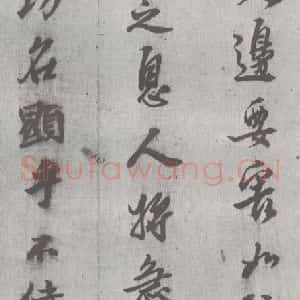 邊要害
之息人將
功名顯于不
Shufawang.CN